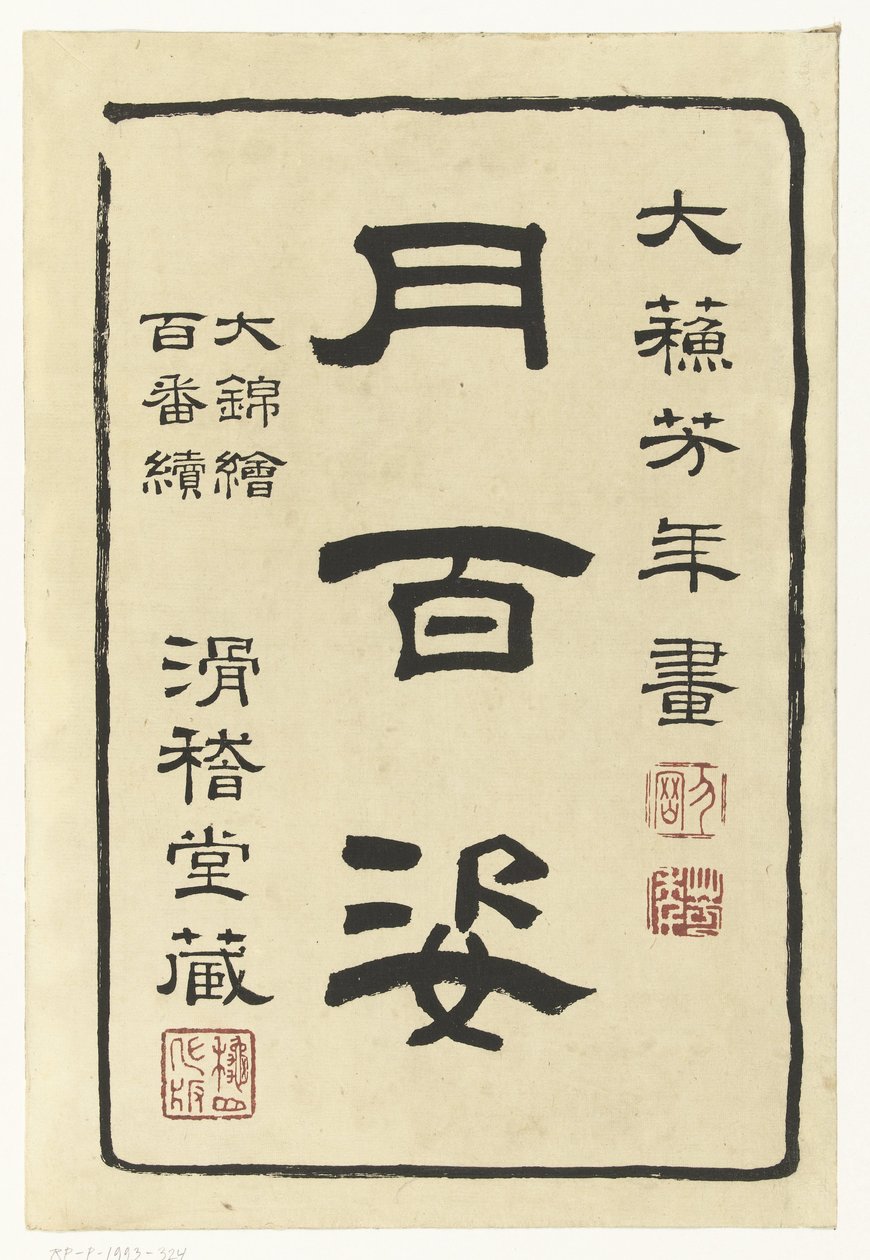 大蘓芳年畫
月百姿
大錦繪
百番續
滑稽堂藏
RP-P-1993-324